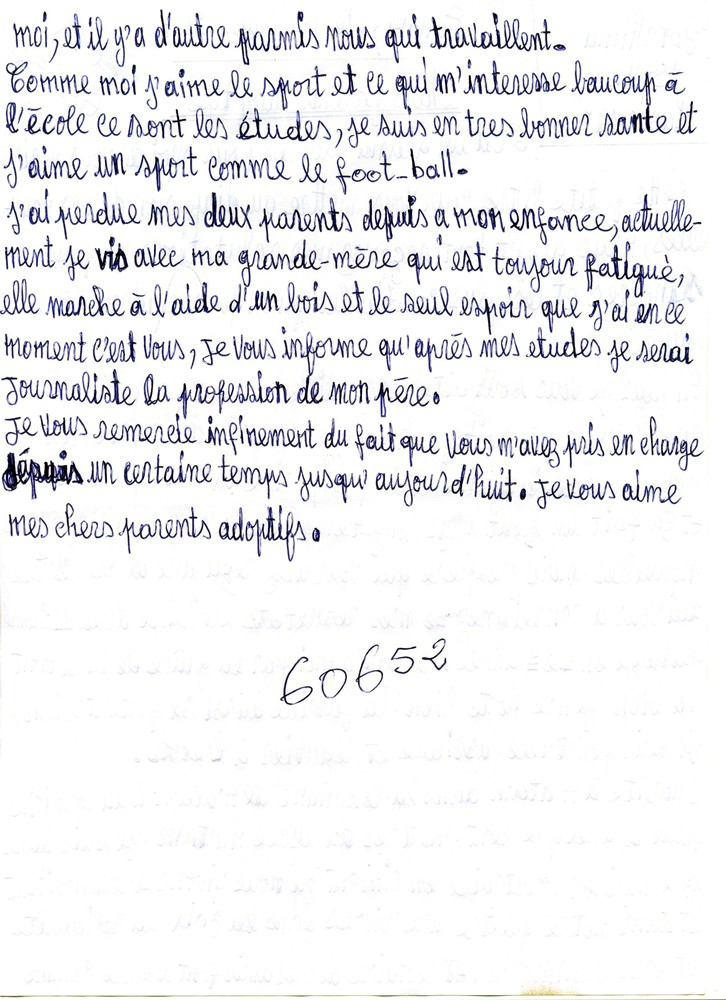 moi, et il y'a d'autre parmis nous qui travaillent.
Comme moi j'aime le sport et ce qui m'interesse baucoup à
l'école ce sont les études, je suis en tres bonner sante et
j'aime un sport comme le foot-ball.
J'ai perdue mes deux parents depuis a mon enfance, actuelle-
ment je vis avec ma grande-mère qui est toujour fatiguè,
elle marche à l'aide d'un bois et le seul espoir que j'ai en ce
moment c'est vous, Je vous informe qu'aprés mes etudes je serai
Journaliste la profession de mon pére.
Je vous remercie infinement du fait que vous m'avez pris en charge
dépuis un certaine temps jusqu'aujourd'huit. Je vous aime
mes chers parents adoptifs.
60652